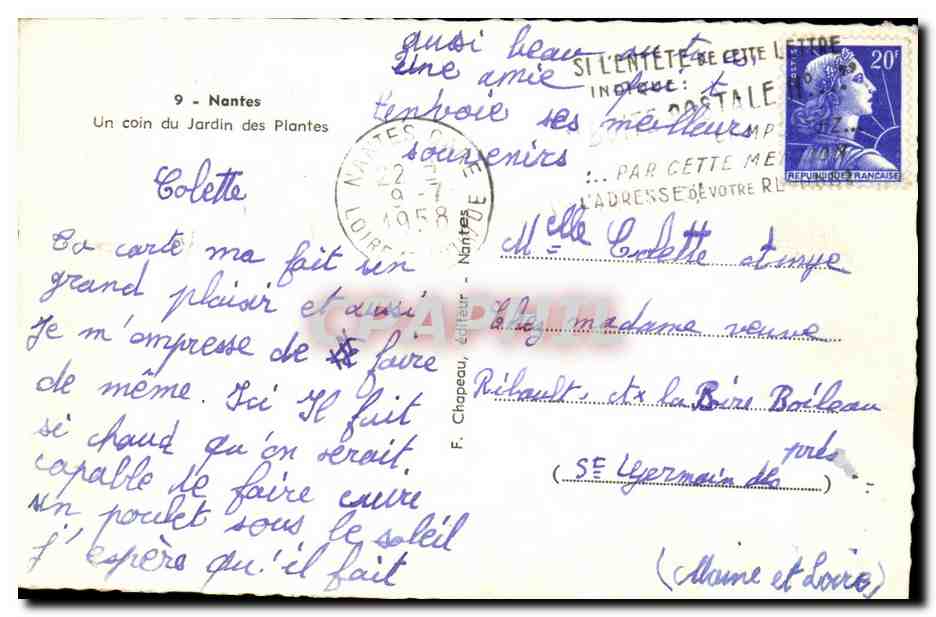 9 - Nantes
Un coin du Jardin des Plantes
Colette
Ta carte ma fait un
grand plaisir et aussi
Je m'empresse de faire
de même. Ici Il fait
si chaud qu'on serait
capable de faire cuire
un poulet sous le soleil
J'espère qu'il fait
aussi beau
une amie qui t
t'envoie ses meilleurs
souvenirs
NANTES GARE
22
9-7
1958
LOIRE
SI L'ENTÊTE DE CETTE LETTRE
INDIQUE:
POSTALE N°
PAR CETTE
L'ADRESSE DE VOTRE
POSTES
20F
REPUBLIQUE FRANCAISE
F. Chapeau, éditeur - Nantes
CPAPHIL
Melle Colette
Chez madame veuve
Ribault, la Boire Boileau
(St Germain des près)
(Maine et Loire)